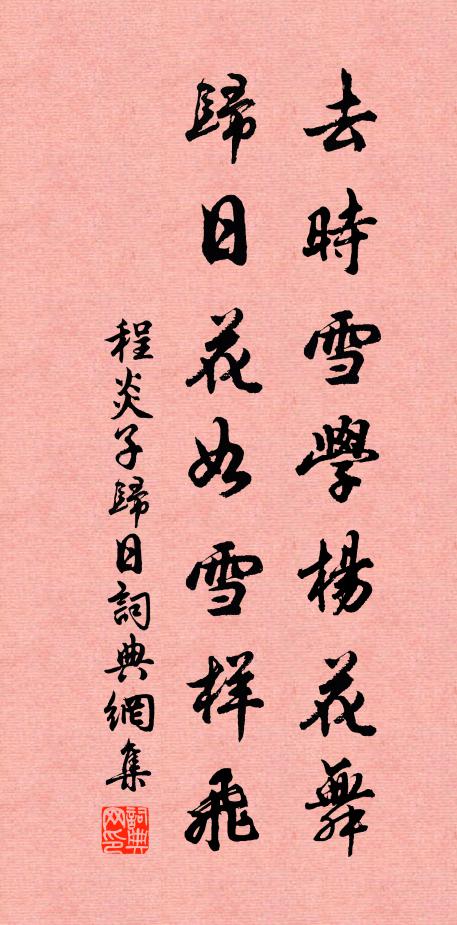 去時雪學楊花舞
歸日花如雪样飛
程炎子歸日詞典網集
詞典网印